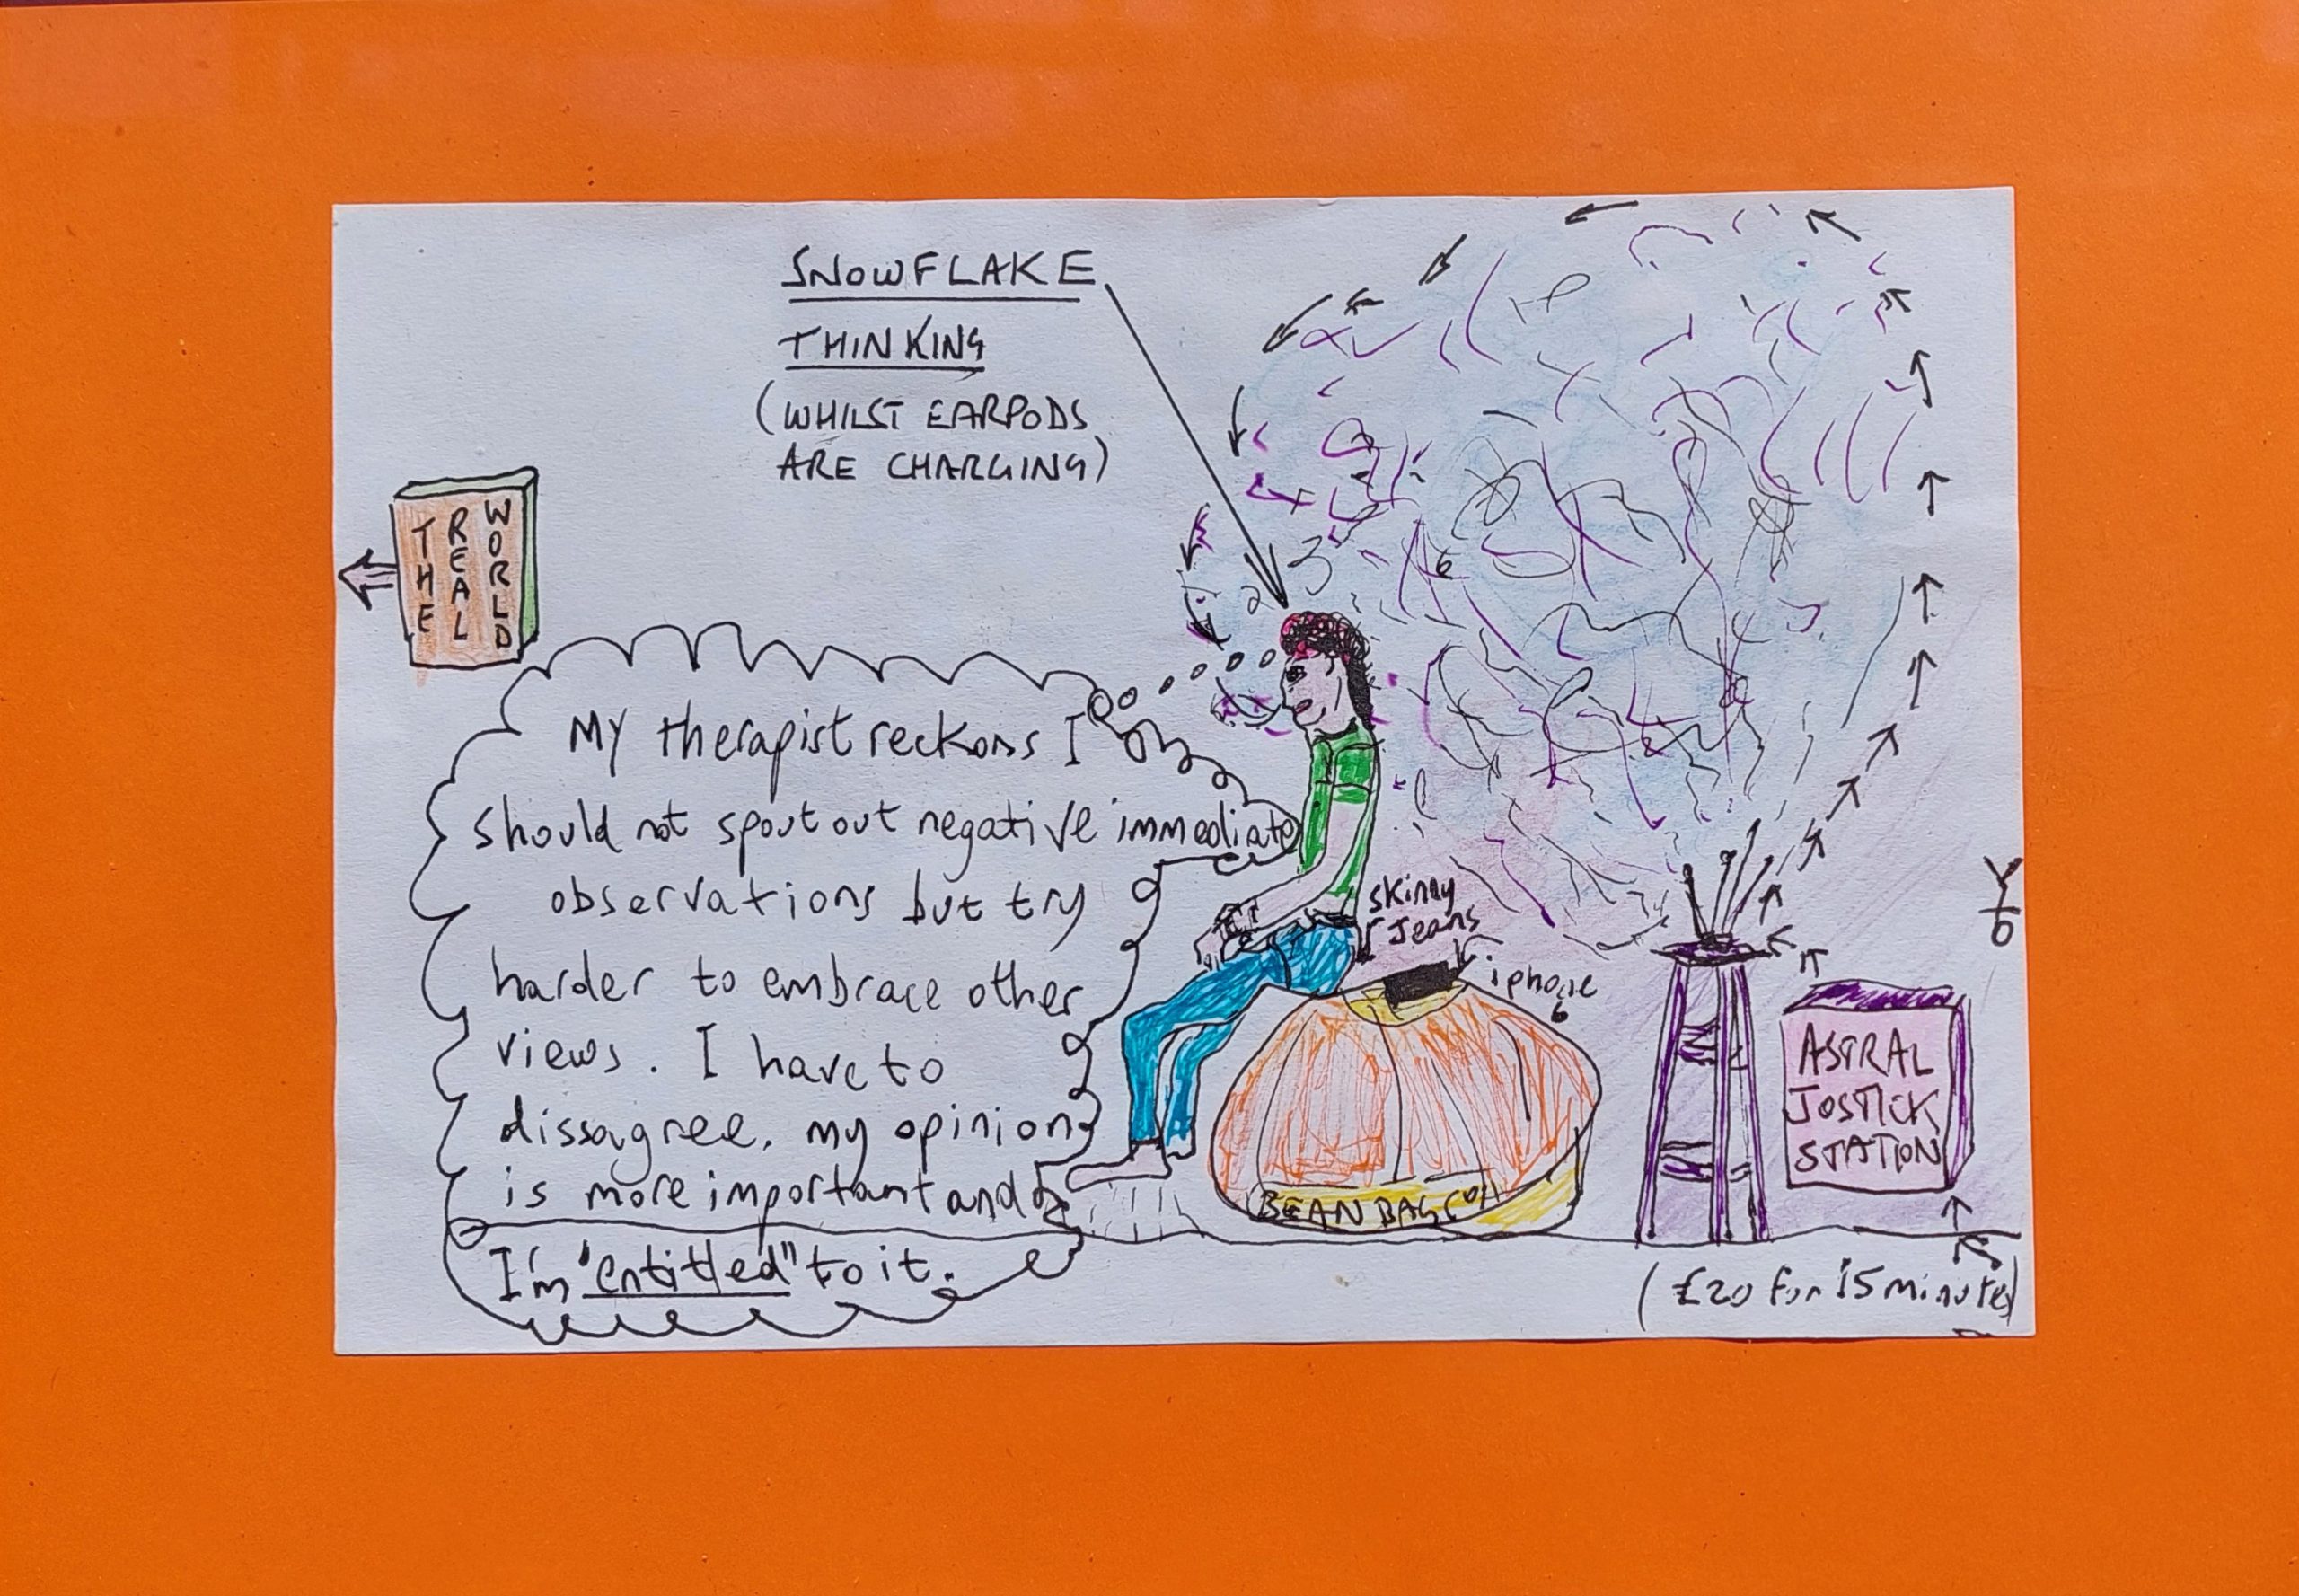 SNOWFLAKE
THINKING
(WHILST EARPODS
ARE CHARGING)
THE REAL WORLD
My therapist reckons I
should not spout out negative immediate
observations but try
harder to embrace other
views. I have to
dissagree, my opinion
is more important and
I'm "entitled" to it.
skinny
Jeans
iphone
6
BEAN BAG
ASTRAL
JOSTICK
STATION
(£20 for 15 minutes)